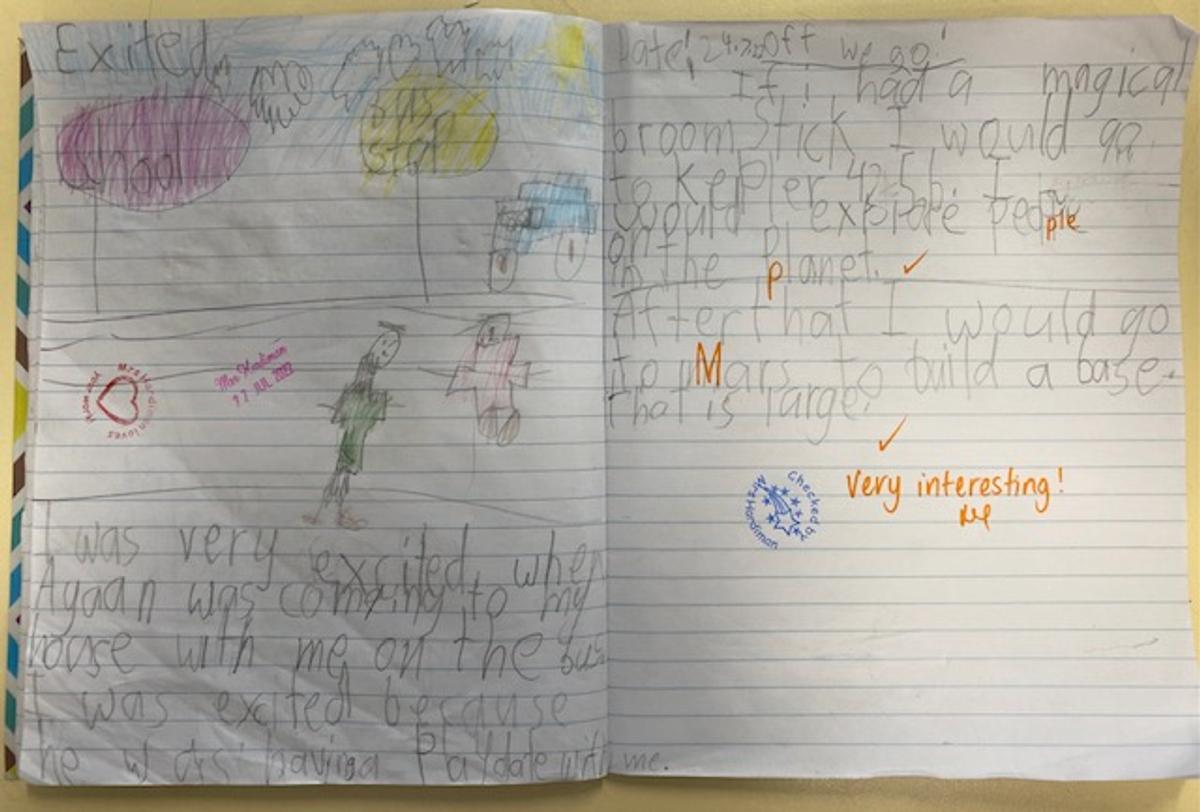 Exited
school
bus
stop
Mrs Hardiman loves your work
Mrs Hardiman
27 JUL 2022
I was very excited, when
Ayaan was comxing to my
house with me on the bus.
I was excited because
he was having a Playdate with me.
Date: 24.7.22 Off we go!
If i had a magical
broom stick I would go
to Kepler 425b. I
would explore people
on the planet. ✓
After that I would go
to Mars to build a base
that is large.
✓
Checked by Mrs Hardiman
Very interesting!